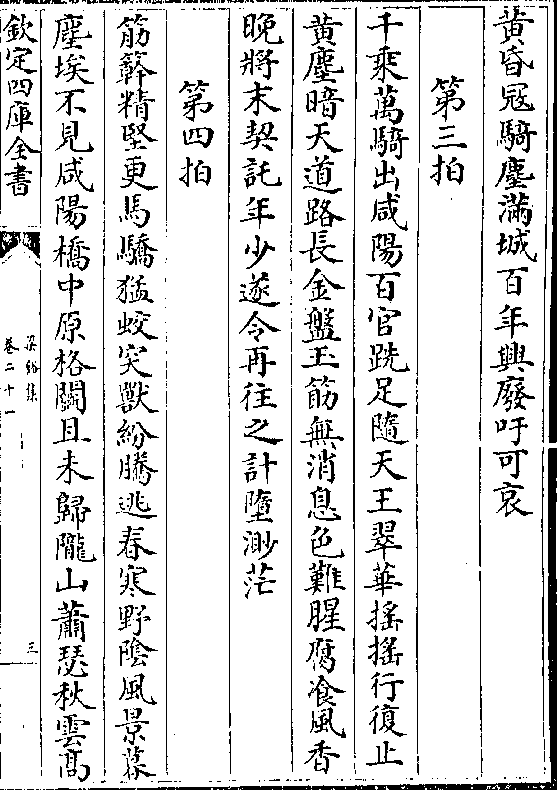 黄昏冦騎塵滿城百年興廢吁可哀
第三拍
千乘萬騎出咸陽百官跣足隨天王翠華摇摇行復止
黄塵暗天道路長金盤玉筯無消息色難腥腐飡風香
晚將末契託年少遂令再往之計墮渺茫
第四拍
筋簳精堅更馬驕猛蛟突獸紛騰逃春寒野陰風景暮
塵埃不見咸陽橋中原格鬭且未歸隴山蕭瑟秋雲髙
欽定四庫全書
梁谿集
卷二十一
三